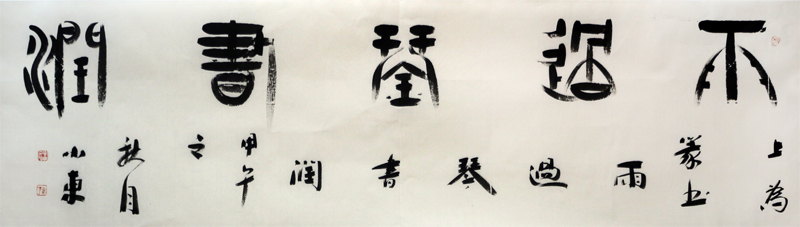 雨過琴書潤
上為
篆书
雨
過
琴
書
潤
甲午
之
秋月
小東